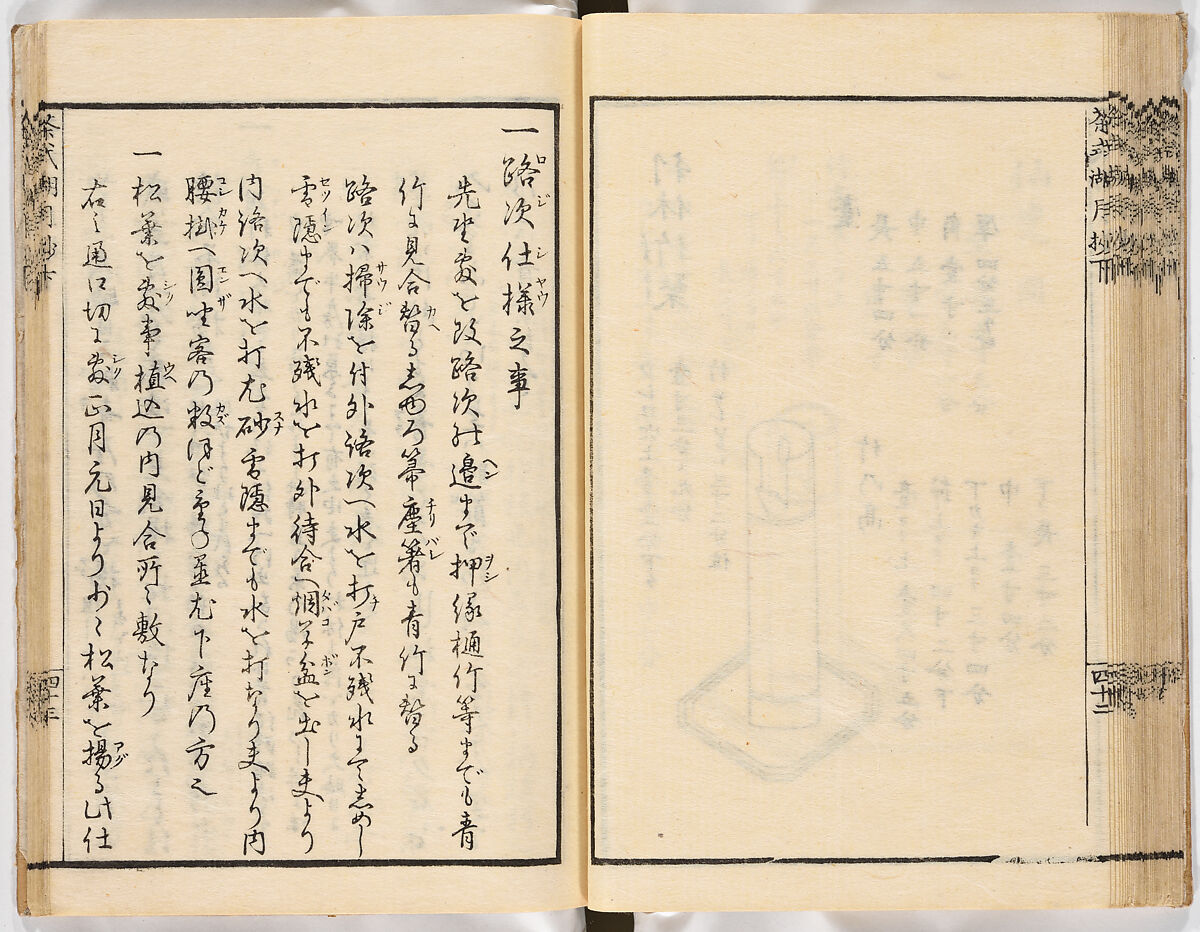 茶式湖月抄下
四十二
一路次仕様之事
先坐敷を改路次此邊まで押縁樋竹等までも青
竹に見合替る志゛ゆろ箒塵箸も青竹に替る
路次ハ掃除を付外路次へ水を打戸不残水にて志めし
雪隠までも不残水を打外待合へ烟草盆を出し夫より
内路次へ水を打尤砂雪隠までも水を打なり夫より内
腰掛へ圓坐客の数ほど重ね置尤下座の方也
一松葉を敷事植込の内見合所々敷なり
右之通口切に敷正月元日より少々松葉を揚る此仕
茶式湖月抄下
四十三